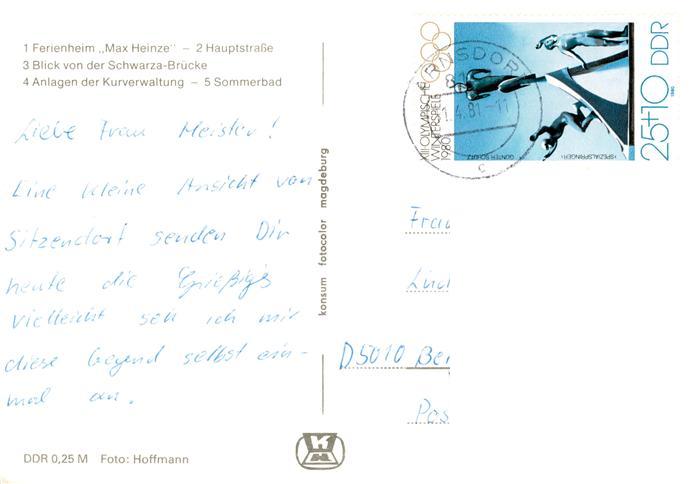 1 Ferienheim „Max Heinze" – 2 Hauptstraße
3 Blick von der Schwarza-Brücke
4 Anlagen der Kurverwaltung – 5 Sommerbad
Liebe Frau Meister!
Eine kleine Ansicht von
Sitzendorf senden Dir
heute die Grießigs
vielleicht seh ich mir
diese Gegend selbst ein-
mal an.
DDR 0,25 M Foto: Hoffmann
konsum fotocolor magdeburg
XIII. OLYMPISCHE
WINTERSPIELE
1980
»SPEZIALSPRINGER«
GÜNTER SCHÜTZ
25+10 DDR
1980
RNSDOR
4.81-11
c
Frau
D5010 Ber
Pos